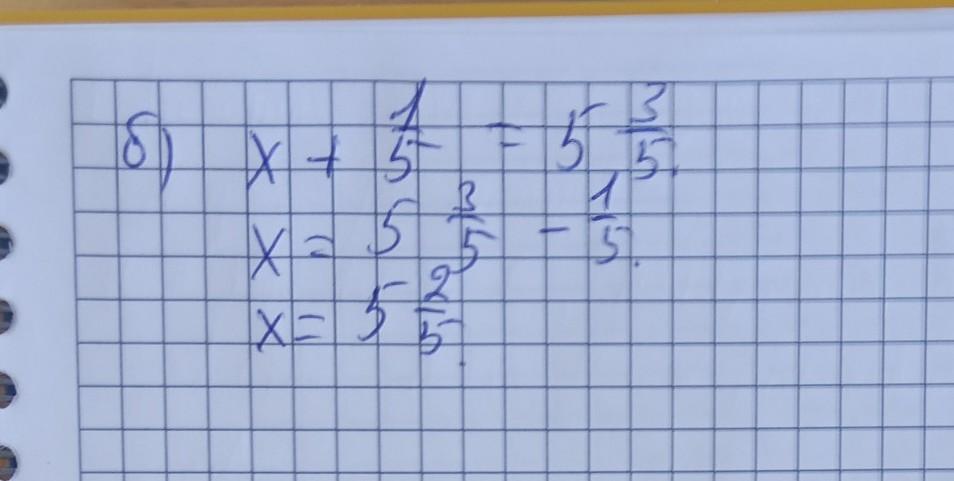 б) x + 1/5 = 5 3/5.
x = 5 3/5 - 1/5.
x = 5 2/5.